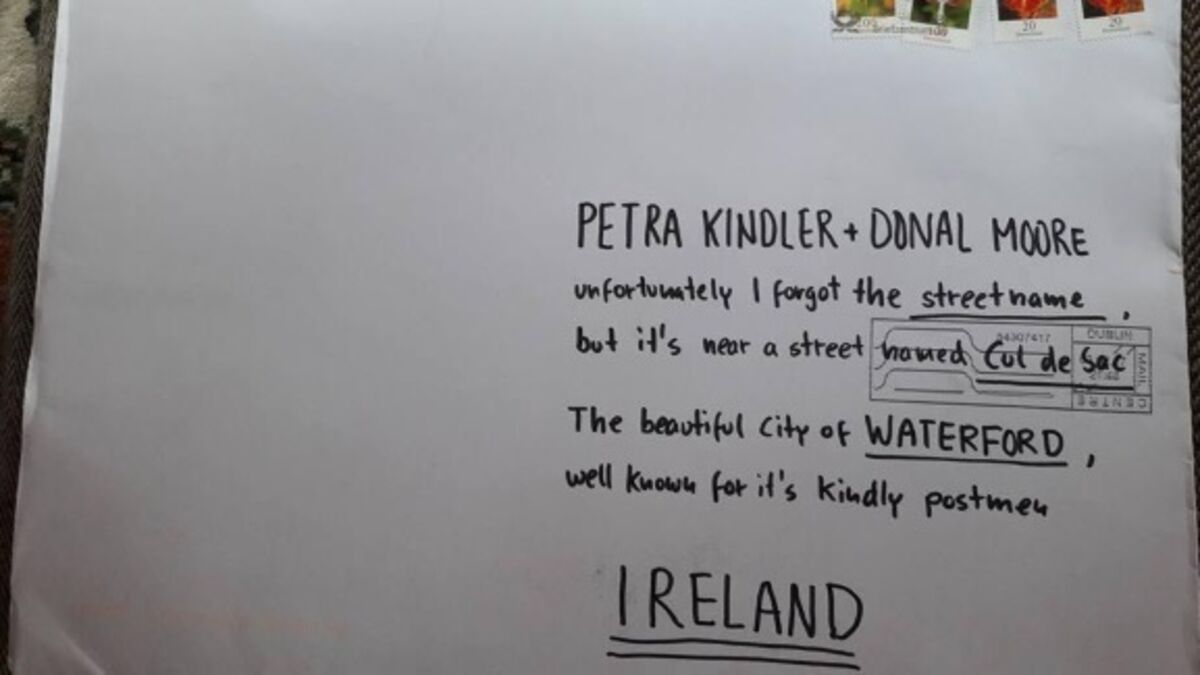 100
Briefzentrum 100
20
20
PETRA KINDLER + DONAL MOORE
unfortunately I forgot the streetname,
but it's near a street named Cul de Sac
DUBLIN
MAIL
CENTRE
The beautiful City of WATERFORD,
well known for it's kindly postmen
IRELAND